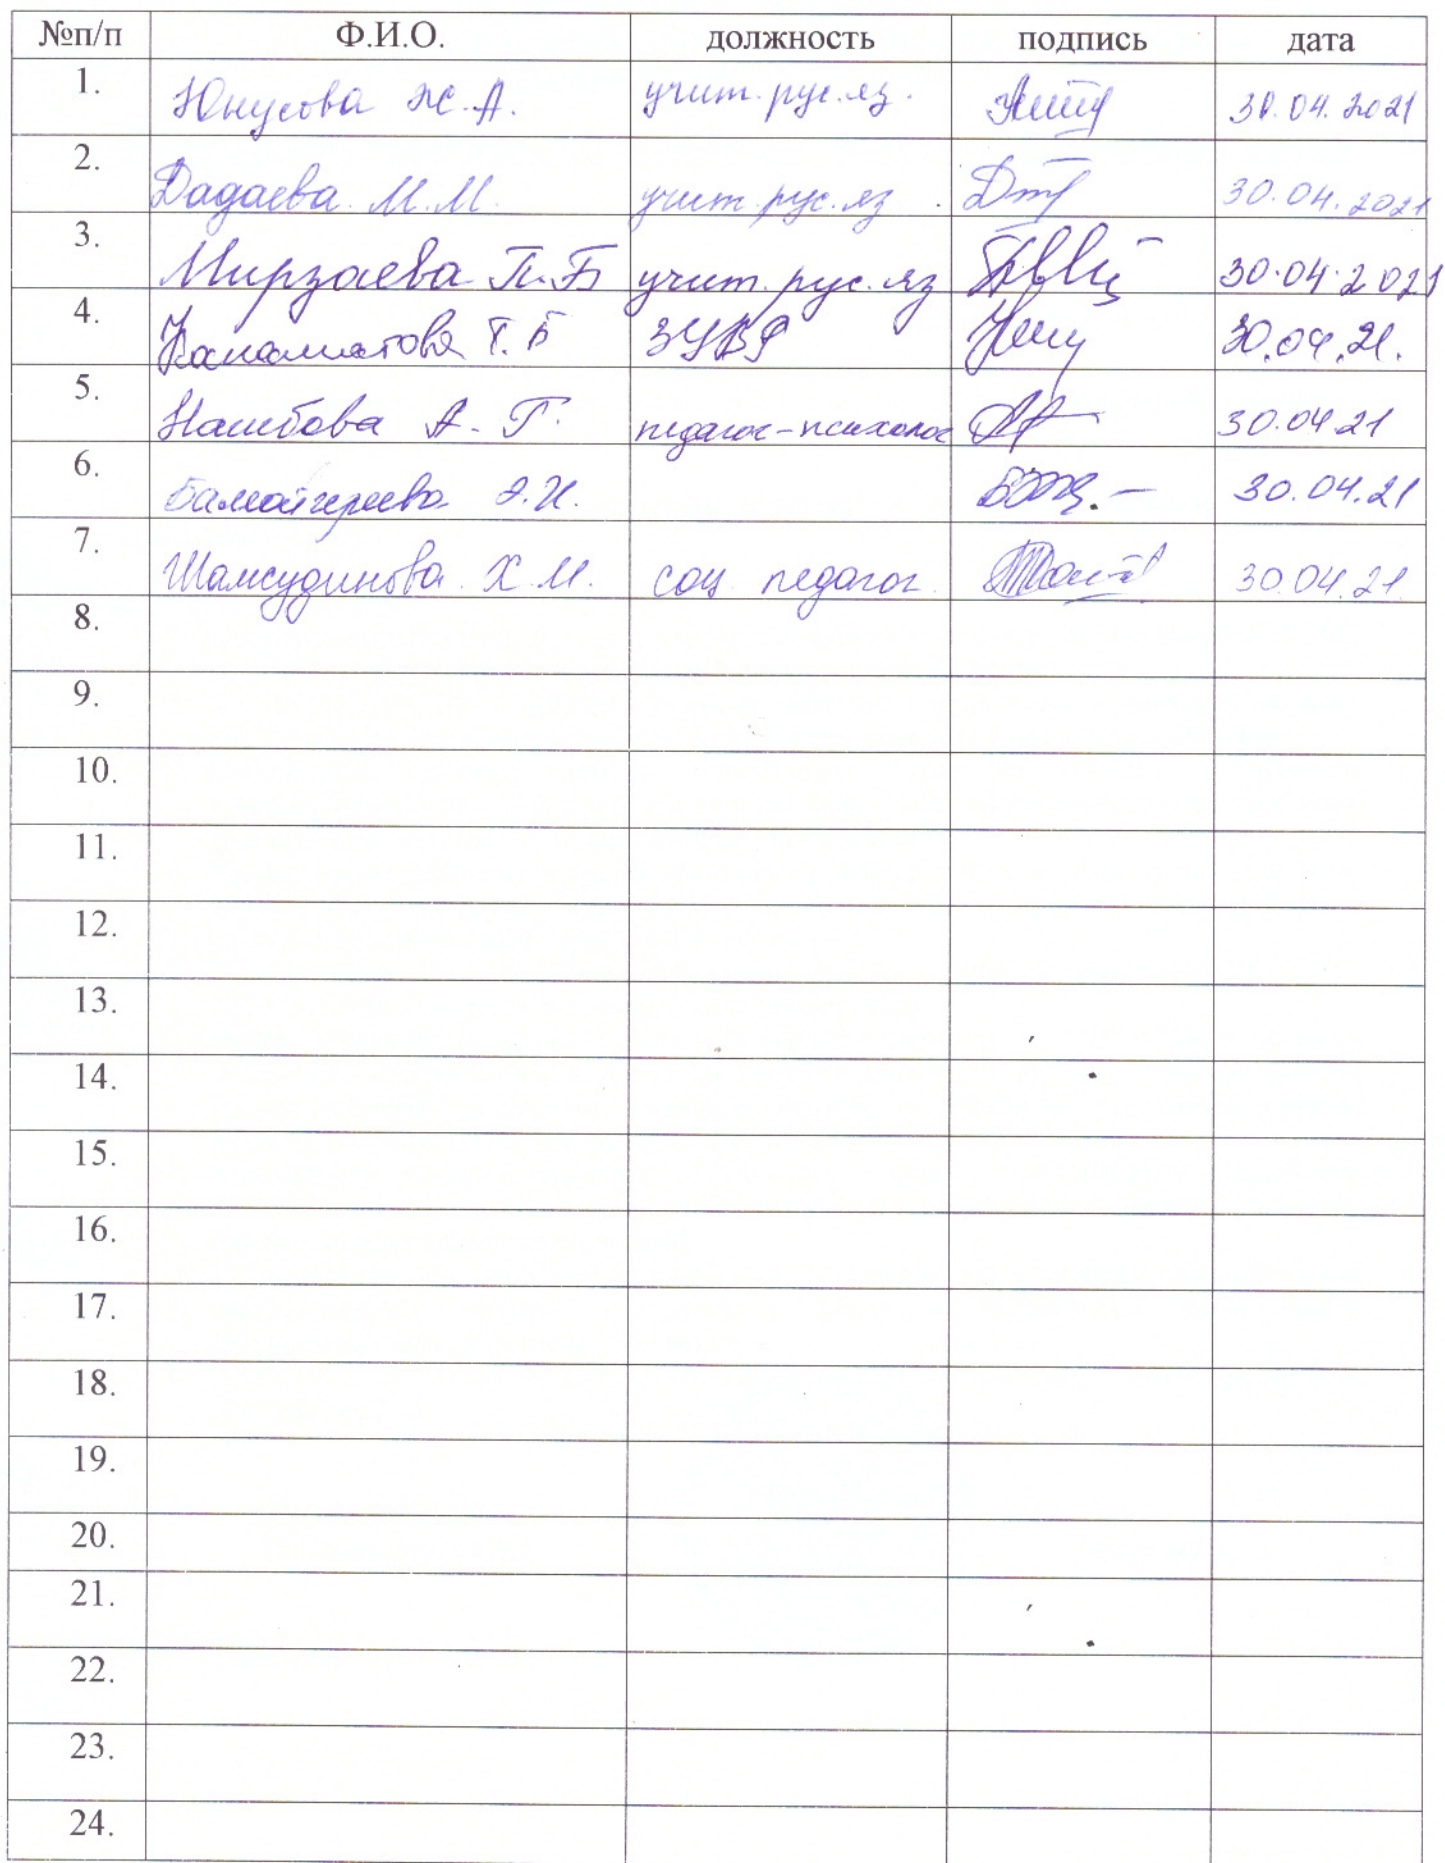 №п/п Ф.И.О. должность подпись дата
1. Юнусова Ж.А. учит. рус. яз. 30.04.2021
2. Дадаева М.М. учит. рус. яз. 30.04.2021
3. Мирзаева П.Б учит. рус. яз 30.04.2021
4. Канаматова Т.Б ЗУВР 30.04.21.
5. А.Г. педагог-психолог 30.04.21
6. Бамматгереева Э.И. 30.04.21
7. Шамсудинова Х.М. соц. педагог 30.04.21
8.
9.
10.
11.
12.
13.
14.
15.
16.
17.
18.
19.
20.
21.
22.
23.
24.